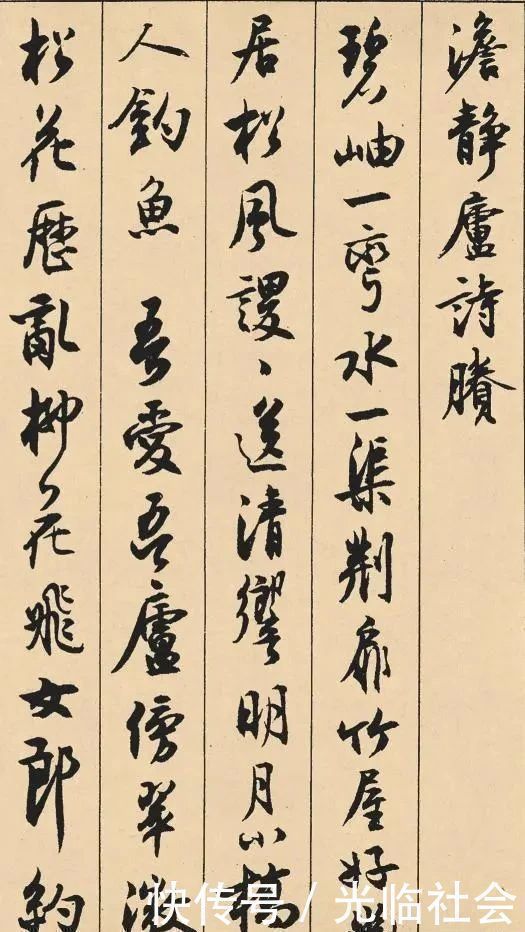 澹靜廬詩賸
碧岫一彎水一渠荊扉竹屋好
居松風謖〻送清響明月小橋
人釣魚 吾愛吾廬傍翠微
松花歷亂柳花飛女郎約
快传号 / 光临社会